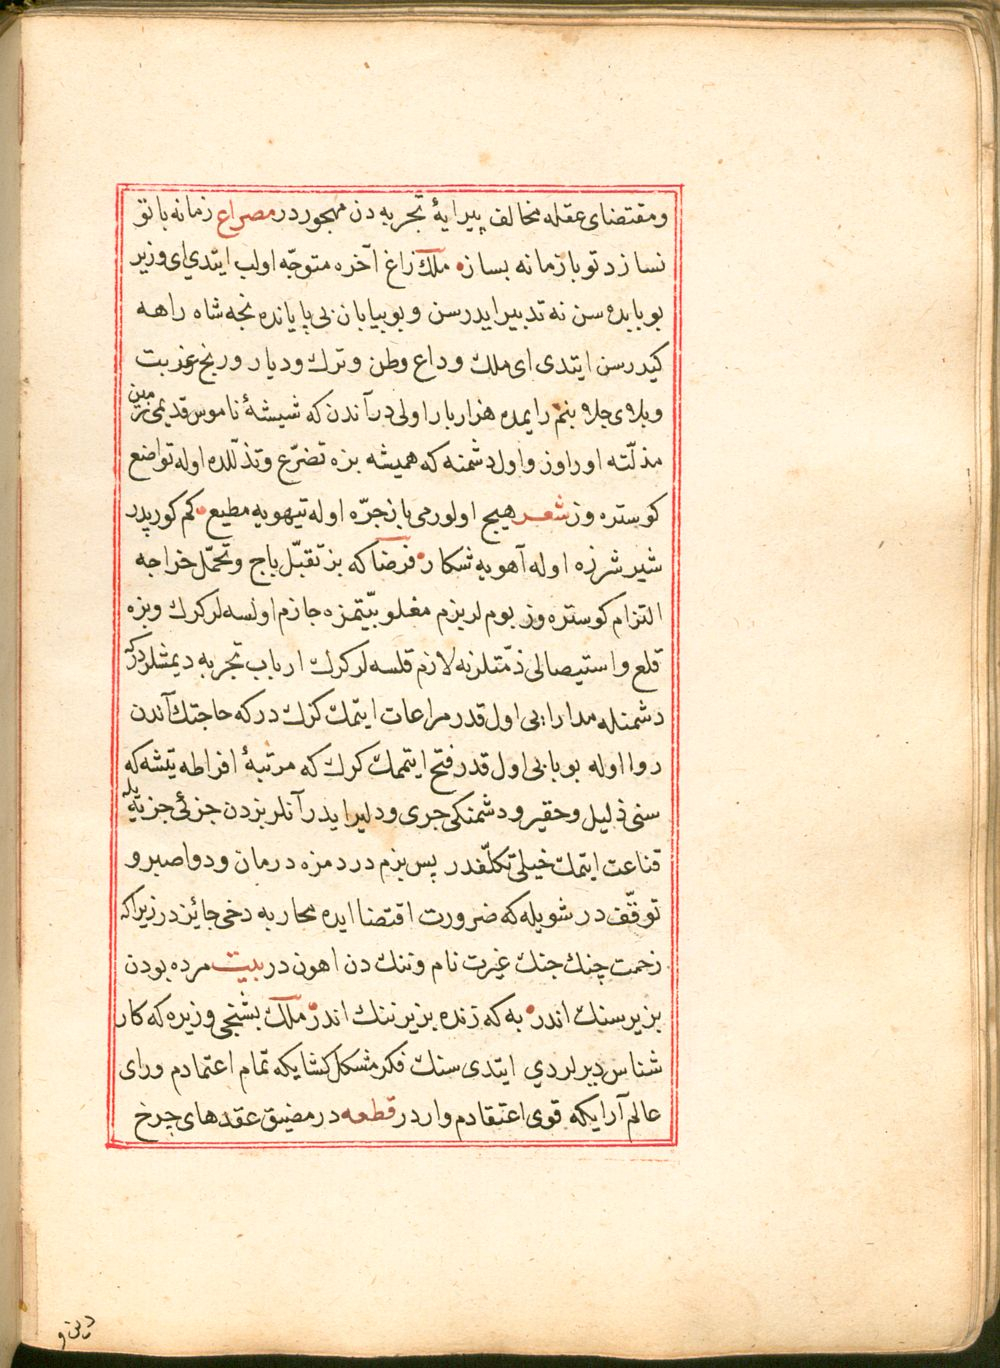 ومقتضای عقله مخالف پیرایۀ تجربه دن مهجوردر مصراع زمانه با تو
نسازد تو با زمانه بساز ملك زاغ آخره متوجّه اولب ایتدی ای وزیر
بو بابده سن نه تدبیر ایدرسن و بو بیابان بی پایانده نجه شاه راهه
کیدرسن ایتدی ای ملك وداع وطن وترك ودیار ورنج غربت
وبلاء جلاء بنم رایمده هزار بار اولی در آندن که شیشۀ ناموس قدیمی زمین
مذلّته اوراوز واول دشمنه که همیشه بزه تضرّع وتذلّلده اوله تواضع
کوستره وز شعر هیچ اولورمی باز جرّه اوله تیهویه مطیع کم کورپدر
شیر شرزه اوله آهویه شکار فرضا که بز تقبّل باج وتحمّل خراجه
التزام کوستره وز بوم لر بزم مغلوبیّتمزه جازم اولسه لر کرك وبزه
قلع واستیصالی ذمّتلرنه لازم قلسه لر کرك ارباب تجربه دیمشلردركه
دشمنله مدارایی اول قدر مراعات ایتمك کرك درکه حاجتك آندن
روا اوله بو بابی اول قدر فتح ایتممك کرك که مرتبۀ افراطه یتشه که
سنی ذلیل وحقیر ودشمنکی جری ودلیر ایدر آنلر بزدن جزئی جزیه یله
قناعت ایتمك خیلی تکلّفدر پس بزم دردمزه درمان ودوا صبر و
توقّف در شویله که ضرورت اقتضا ایده محاربه دخی جائزدر زیرا که
زحمت چنك جنك غیرت نام وننك دن اهون در بیت مرده بودن
بزیر سنك اندر به که زنده بزیر ننك اندر ملك بشنجی وزیره که کار
شناس دیرلردي ایتدی سنك فکر مشکل کشایکه تمام اعتمادم ورای
عالم آرایکه قوی اعتقادم واردر قطعه در مضیق عقدهای چرخ